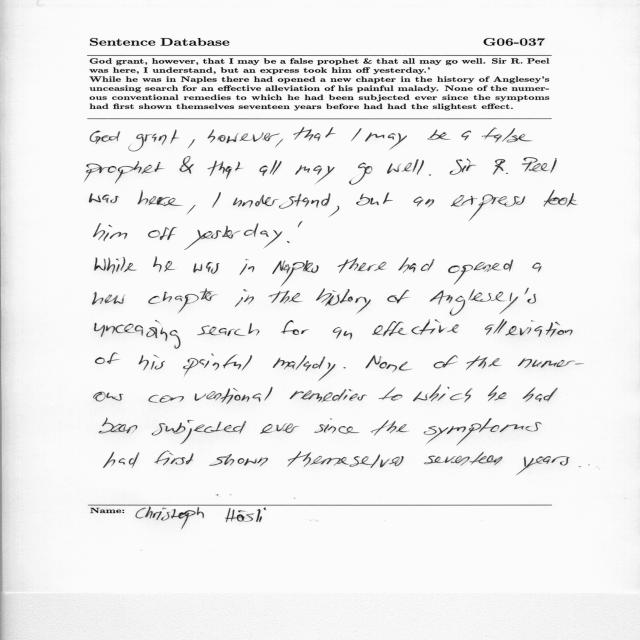 Sentence Database G06-037
God grant, however, that I may be a false prophet & that all may go well. Sir R. Peel
was here, I understand, but an express took him off yesterday.'
While he was in Naples there had opened a new chapter in the history of Anglesey's
unceasing search for an effective alleviation of his painful malady. None of the numer-
ous conventional remedies to which he had been subjected ever since the symptoms
had first shown themselves seventeen years before had had the slightest effect.
God grant, however, that I may be a false
prophet & that all may go well. Sir R. Peel
was here, I understand, but an express took
him off yesterday.'
While he was in Naples there had opened a
new chapter in the history of Anglesey's
unceasing search for an effective alleviation
of his painful malady. None of the numer-
ous conventional remedies to which he had
been subjected ever since the symptoms
had first shown themselves seventeen years ...
Name: Christoph Hösli